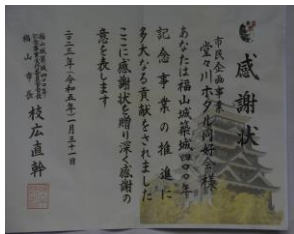 感謝状
市民企画事業
堂々川ホタル同好会様
あなたは福山城築城四〇〇年
記念事業の推進に
多大なる貢献をされました
ここに感謝状を贈り深く感謝の
意を表します
二〇二三年(令和五年)一月三十一日
福山城築城四〇〇年
記念事業実行委員会会長
福山市長 枝広直幹